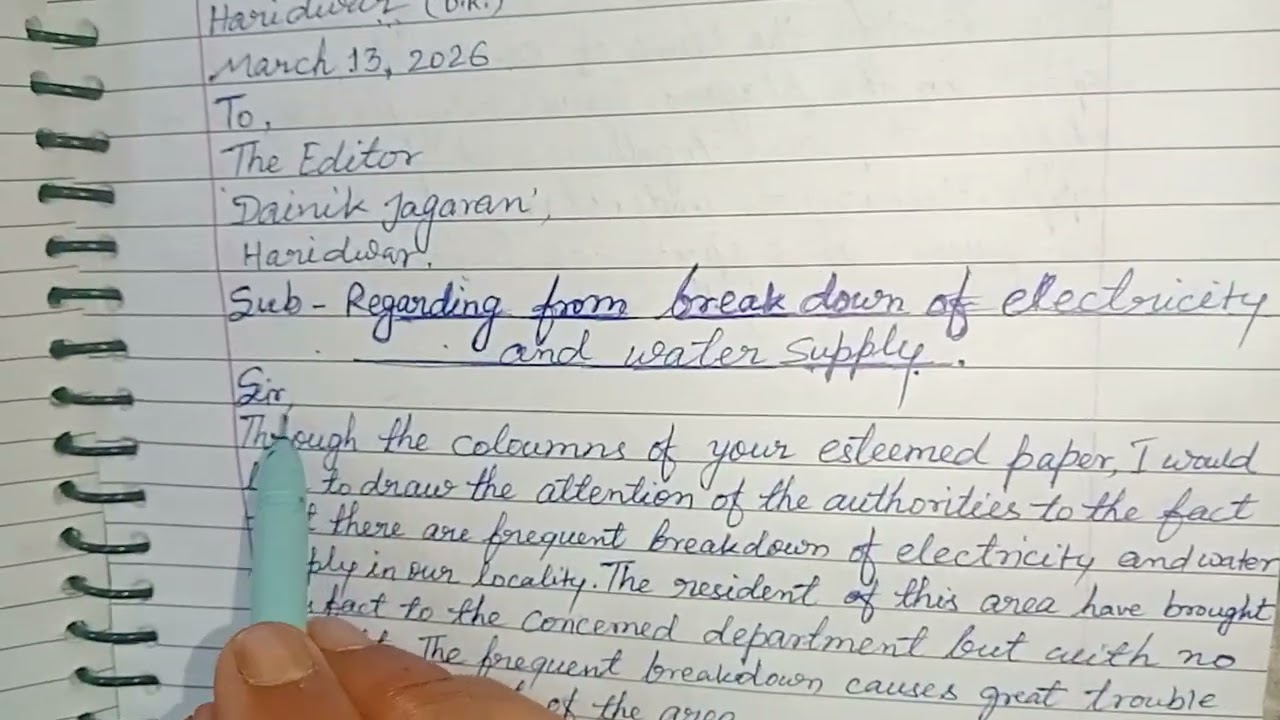 Haridwar (U.K.)
March 13, 2026
To,
The Editor
'Dainik Jagaran',
Haridwar.
Sub - Regarding from break down of electricity
and water supply.
Sir,
Through the coloumns of your esteemed paper, I would
to draw the attention of the authorities to the fact
there are frequent breakdown of electricity and water
in our locality. The resident of this area have brought
fact to the concerned department but with no
The frequent breakdown causes great trouble
of the area